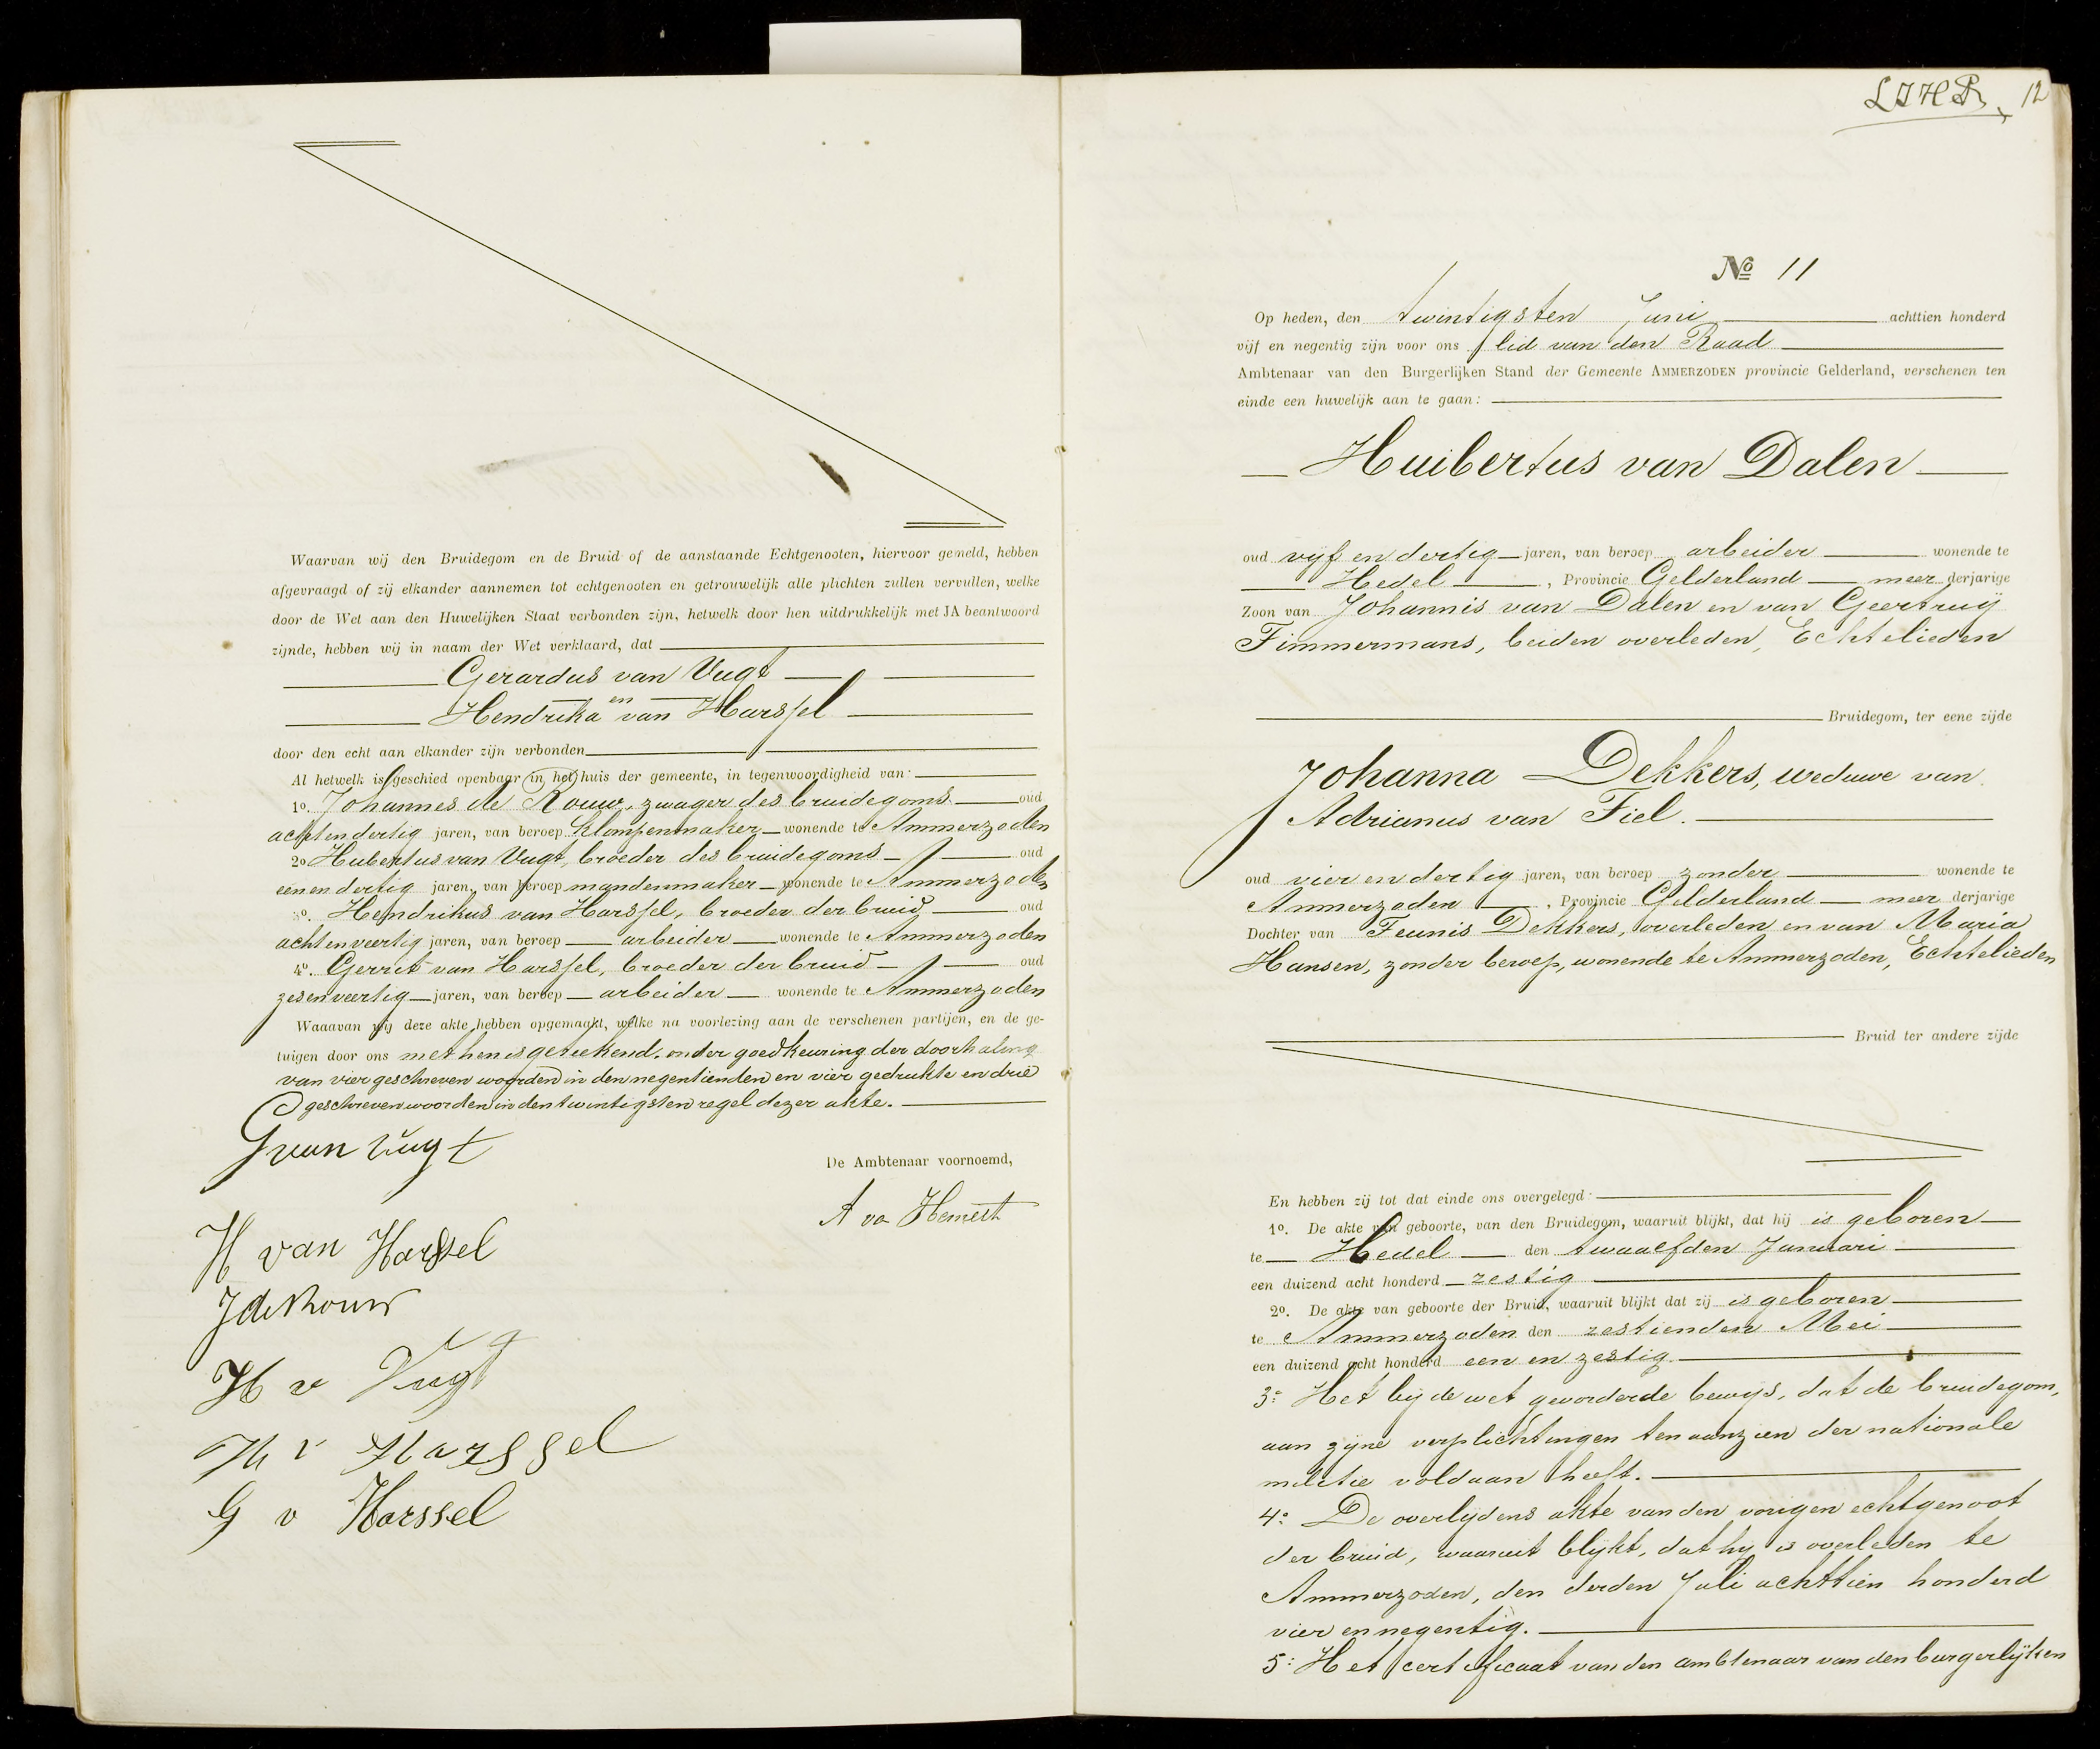 Waarvan wij den Bruidegom en de Bruid of de aanstaande Echtgenooten, hiervoor gemeld, hebben
afgevraagd of zij elkander aannemen tot echtgenooten en getrouwelijk alle plichten zullen vervullen, welke
door de Wet aan den Huwelijken Staat verbonden zijn, hetwelk door hen uitdrukkelijk met JA beantwoord
zijnde, hebben wij in naam der Wet verklaard, dat
Gerardus van Vugt
en
Hendrika van Harssel
door den echt aan elkander zijn verbonden
Al hetwelk is geschied openbaar in het huis der gemeente, in tegenwoordigheid van:
1o. Johannes de Rouw, zwager des bruidegoms oud
achtendertig jaren, van beroep klompenmaker wonende te Ammerzoden
2o Hubertus van Vugt, broeder des bruidegoms oud
eenendertig jaren, van beroep mandenmaker wonende te Ammerzoden
3o. Hendrikus van Harssel, broeder der bruid oud
achtenveertig jaren, van beroep arbeider wonende te Ammerzoden
4o. Gerrit van Harssel, broeder der bruid oud
zesenveertig jaren, van beroep arbeider wonende te Ammerzoden
Waaavan wij deze akte hebben opgemaakt, welke na voorlezing aan de verschenen partijen, en de ge-
tuigen door ons met hen is geteekend. onder goedkeuring der doorhaling
van vier geschreven woorden in den negentienden en vier gedrukte en drie
geschreven woorden in den twintigsten regel dezer akte.
G van Vugt
De Ambtenaar voornoemd,
A va Hemert
H van Harssel
J de Rouw
H v Vugt
H v Harssel
G v Harssel
12
No 11
Op heden, den twintigsten Juni achttien honderd
vijf en negentig zijn voor ons lid van den Raad
Ambtenaar van den Burgerlijken Stand der Gemeente AMMERZODEN provincie Gelderland, verschenen ten
einde een huwelijk aan te gaan:
Huibertus van Dalen
oud vijf en dertig jaren, van beroep arbeider wonende te
Hedel, Provincie Gelderland meer derjarige
Zoon van Johannis van Dalen en van Geertruij
Timmermans, beiden overleden, Echtelieden
Bruidegom, ter eene zijde
Johanna Dekkers, weduwe van
Adrianus van Tiel.
oud vier en dertig jaren, van beroep zonder wonende te
Ammerzoden, Provincie Gelderland meer derjarige
Dochter van Teunis Dekkers, overleden en van Maria
Hansen, zonder beroep, wonende te Ammerzoden, Echtelieden
Bruid ter andere zijde
En hebben zij tot dat einde ons overgelegd:
1o. De akte van geboorte, van den Bruidegom, waaruit blijkt, dat hij is geboren
te Hedel den twaalfden Januari
een duizend acht honderd zestig
2o. De akte van geboorte der Bruid, waaruit blijkt dat zij is geboren
te Ammerzoden den zestienden Mei
een duizend acht honderd een en zestig.
3o Het bij de wet gevorderde bewijs, dat de bruidegom,
aan zijne verplichtingen ten aanzien der nationale
militie voldaan heeft.
4o De overlijdens akte van den vorigen echtgenoot
der bruid, waaruit blijkt, dat hij is overleden te
Ammerzoden, den derden Juli achttien honderd
vier en negentig.
5o Het certificaat van den ambtenaar van den burgerlijken